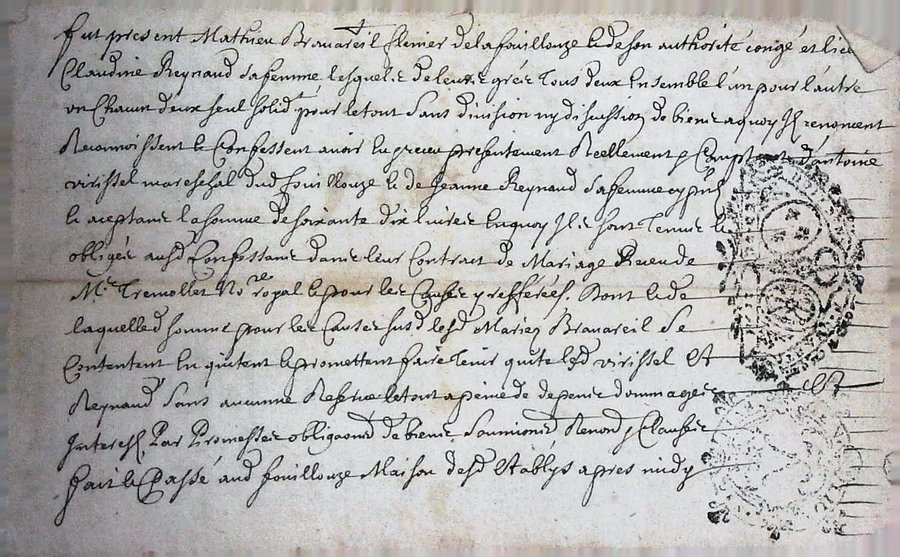 fut present Mathieu Branareil de la fouillouze le de son authorité congé et lice
Claudine Reynaud sa femme lesquels de leurs grés tous deux Ensemble l'un pour l'autre
un Chacun deux seul solid. pour le tout sans division ny discution de biens a quoy Ils renoncent
Reconnoissent et Confessent avoir Eu presentement Reellement Comptant d'antoine
virissel mareschal dud fouillouze et de Jeanne Reynaud sa femme
et aceptans la somme de soixante dix livres En quoy Ils sont Tenus et
obligés Confessans dans leur Contract de Mariage Receu de
Me Tremollet Nore royal et pour les Causes y refferées. Dont et de
laquelle d somme pour les Causes susd lesd Mariez Branareil se
Contentent En quitent et promettent faire tenir quite lesd virissel Et
Reynaud sans aucunne Reserve le tout a peine de depens dommages Et
Interestz Par Promesses obligaons de biens Soumions Renons Clauses
fait et Passé aud fouillouze Maison desd Establys apres midy